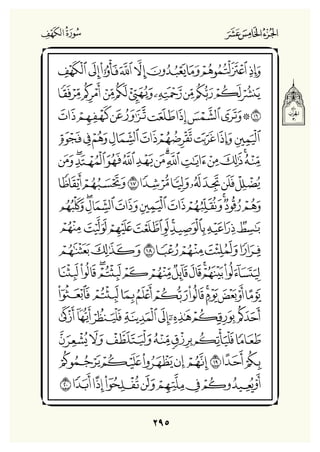 سُورَةُ الكَهْفِ
الجُزْءُ الخَامِسَ عَشَرَ
وَإِذِ ٱعْتَزَلْتُمُوهُمْ وَمَا يَعْبُدُونَ إِلَّا ٱللَّهَ فَأْوُۥٓا۟ إِلَى ٱلْكَهْفِ
يَنشُرْ لَكُمْ رَبُّكُم مِّن رَّحْمَتِهِۦ وَيُهَيِّئْ لَكُم مِّنْ أَمْرِكُم مِّرْفَقًا
١٦ ۞ وَتَرَى ٱلشَّمْسَ إِذَا طَلَعَت تَّزَٰوَرُ عَن كَهْفِهِمْ ذَاتَ
ٱلْيَمِينِ وَإِذَا غَرَبَت تَّقْرِضُهُمْ ذَاتَ ٱلشِّمَالِ وَهُمْ فِى فَجْوَةٍ
مِّنْهُ ۚ ذَٰلِكَ مِنْ ءَايَٰتِ ٱللَّهِ ۗ مَن يَهْدِ ٱللَّهُ فَهُوَ ٱلْمُهْتَدِ ۖ وَمَن
يُضْلِلْ فَلَن تَجِدَ لَهُۥ وَلِيًّا مُّرْشِدًا ١٧ وَتَحْسَبُهُمْ أَيْقَاظًا
وَهُمْ رُقُودٌ ۚ وَنُقَلِّبُهُمْ ذَاتَ ٱلْيَمِينِ وَذَاتَ ٱلشِّمَالِ ۖ وَكَلْبُهُم
بَٰسِطٌ ذِرَاعَيْهِ بِٱلْوَصِيدِ ۚ لَوِ ٱطَّلَعْتَ عَلَيْهِمْ لَوَلَّيْتَ مِنْهُمْ
فِرَارًا وَلَمُلِئْتَ مِنْهُمْ رُعْبًا ١٨ وَكَذَٰلِكَ بَعَثْنَٰهُمْ
لِيَتَسَآءَلُوا۟ بَيْنَهُمْ ۚ قَالَ قَآئِلٌ مِّنْهُمْ كَمْ لَبِثْتُمْ ۖ قَالُوا۟ لَبِثْنَا
يَوْمًا أَوْ بَعْضَ يَوْمٍ ۚ قَالُوا۟ رَبُّكُمْ أَعْلَمُ بِمَا لَبِثْتُمْ فَٱبْعَثُوٓا۟
أَحَدَكُم بِوَرِقِكُمْ هَٰذِهِۦٓ إِلَى ٱلْمَدِينَةِ فَلْيَنظُرْ أَيُّهَآ أَزْكَىٰ
طَعَامًا فَلْيَأْتِكُم بِرِزْقٍ مِّنْهُ وَلْيَتَلَطَّفْ وَلَا يُشْعِرَنَّ
بِكُمْ أَحَدًا ١٩ إِنَّهُمْ إِن يَظْهَرُوا۟ عَلَيْكُمْ يَرْجُمُوكُمْ
أَوْ يُعِيدُوكُمْ فِى مِلَّتِهِمْ وَلَن تُفْلِحُوٓا۟ إِذًا أَبَدًا ٢٠
٢٩٥